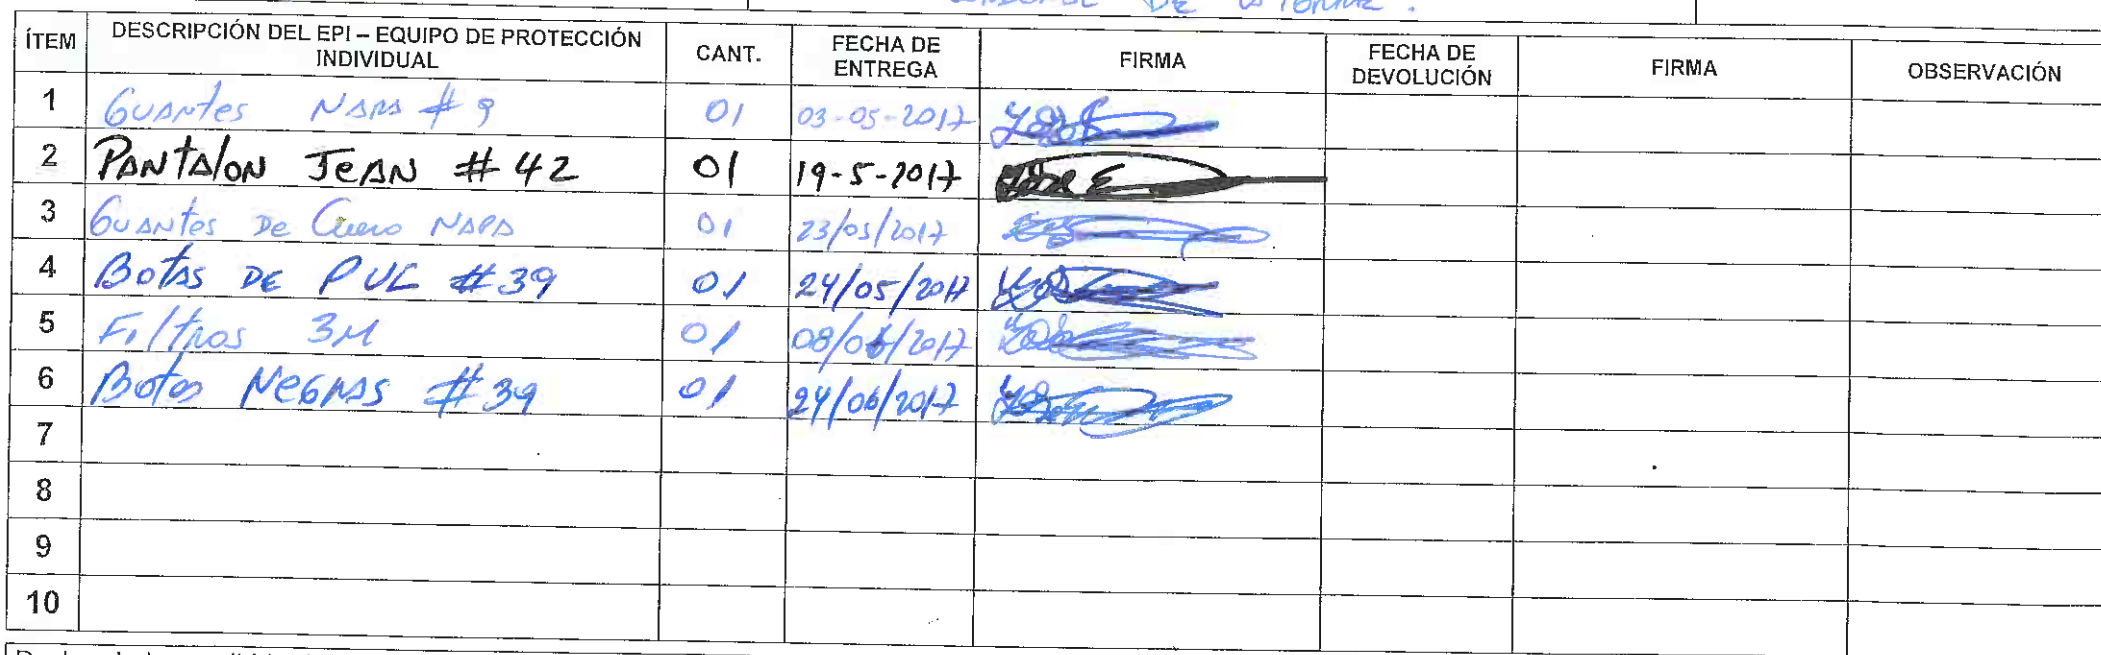 DE
ÍTEM DESCRIPCIÓN DEL EPI – EQUIPO DE PROTECCIÓN INDIVIDUAL CANT. FECHA DE ENTREGA FIRMA FECHA DE DEVOLUCIÓN FIRMA OBSERVACIÓN
1 Guantes NAPA # 9 01 03-05-2017
2 PANTAlON JEAN # 42 01 19-5-2017
3 Guantes De Cuero NAPA 01 23/05/2017
4 Botas DE PVC #39 01 24/05/2017
5 Filtros 3M 01 08/06/2017
6 Botas Negras #39 01 24/06/2017
7
8
9
10